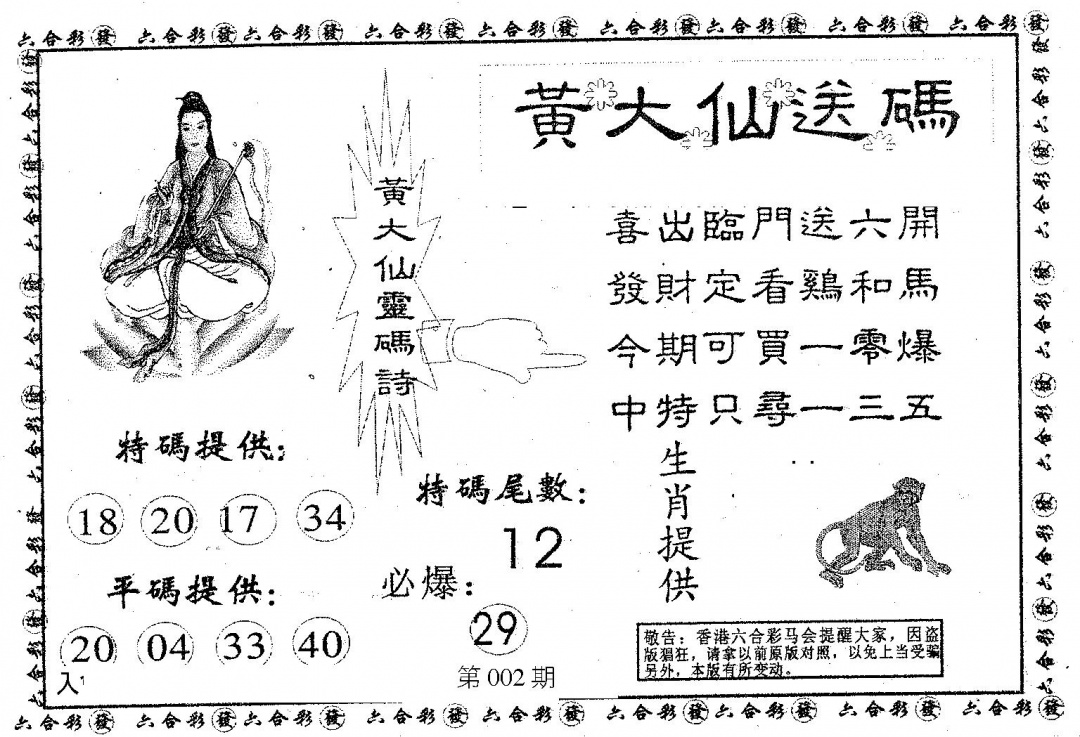 六合彩發 六合彩發 六合彩發 六合彩發 六合彩發 六合彩發 六合彩發 六合彩發 六合彩發
黃大仙送碼
黃大仙靈碼詩
喜出臨門送六開
發財定看鷄和馬
今期可買一零爆
中特只尋一三五
特碼提供：
18 20 17 34
平碼提供：
20 04 33 40
入1
特碼尾數：
12
必爆：
29
第002期
生肖提供
敬告：香港六合彩马会提醒大家，因盗
版猖狂，请拿以前原版对照，以免上当受骗
另外，本版有所变动。
六合彩發 六合彩發 六合彩發 六合彩發 六合彩發 六合彩發 六合彩發 六合彩發 六合彩發